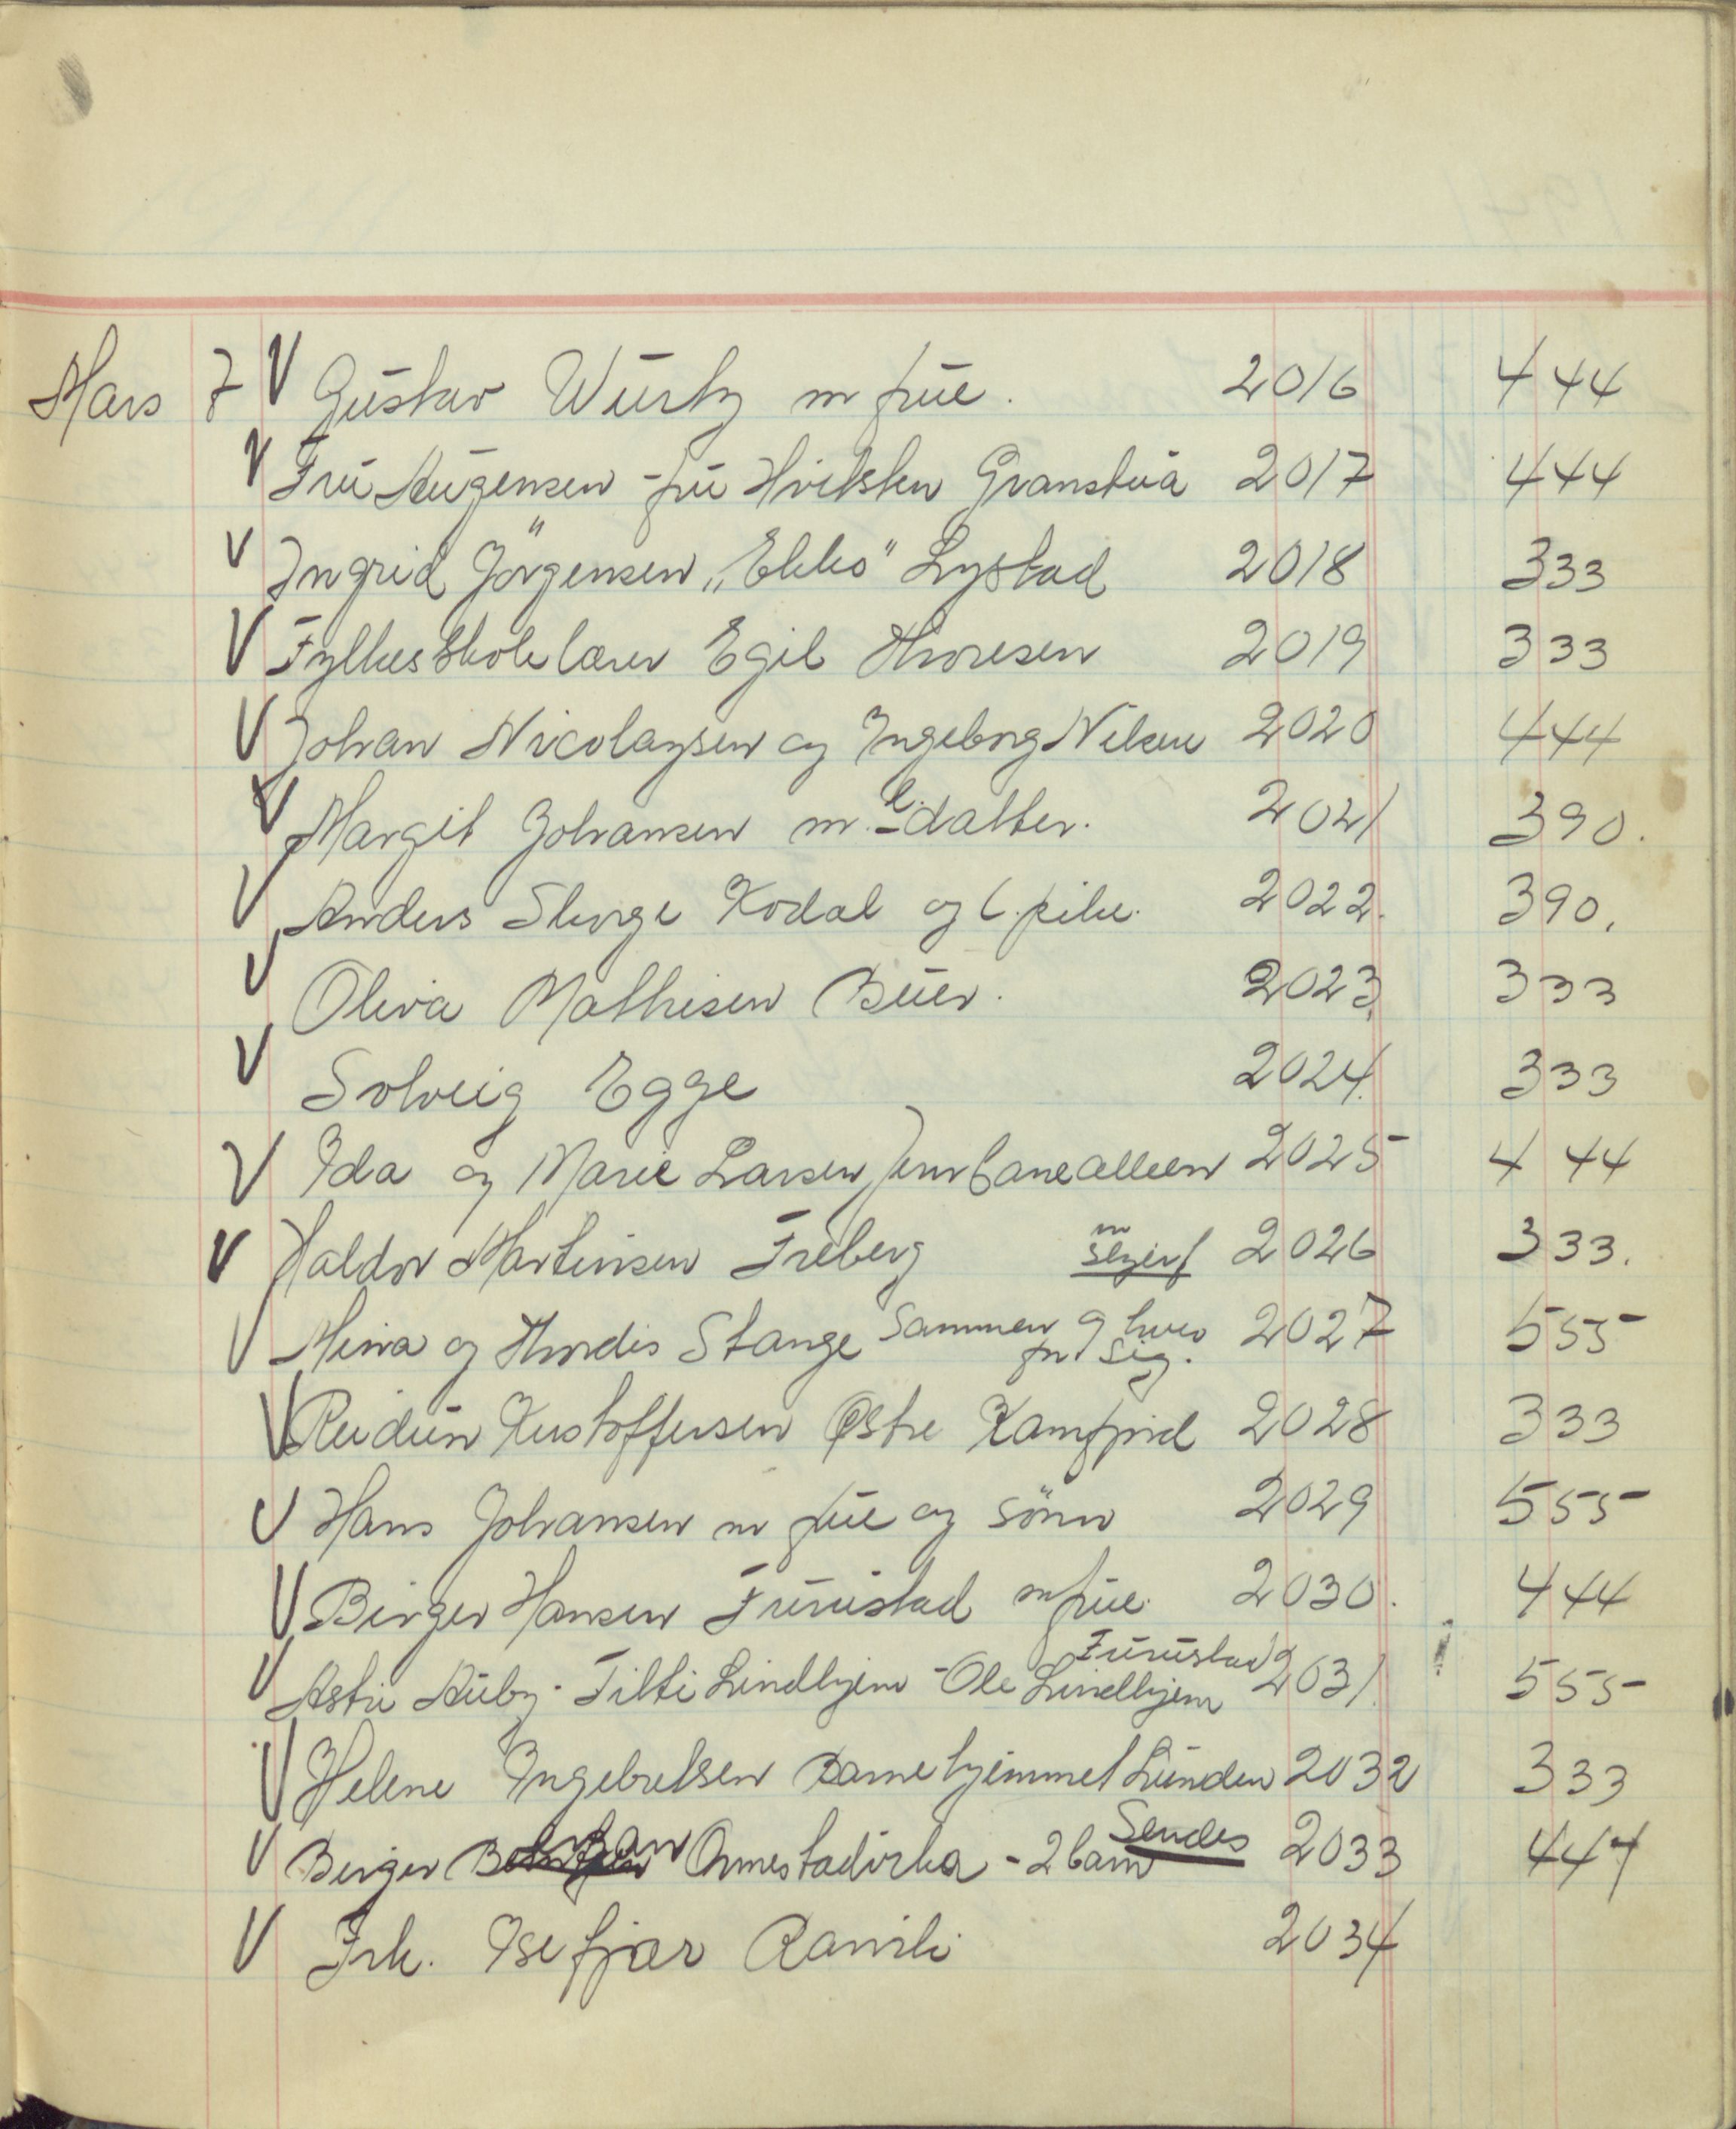 Mars 7 V Gustav Würtz m frue. 2016 444
V Fru Augensen - fru Hvitsten Granstua 2017 444
V Ingrid Jörgensen „Ekko" Lystad 2018 333
V Fylkesskolelærer Egil Thoresen 2019 333
V Johan Nicolaysen og Ingeborg Nilsen 2020 444
V Margit Johansen m. L. datter. 2021 390.
V Anders Skorge Kodal og l. pike. 2022. 390.
V Olivia Mathisen Buer. 2023. 333
V Solveig Egge 2024. 333
V Ida og Marie Larsen Jernbanealleen 2025 444
V Haldor Martinsen Freberg m skjerf 2026 333.
V Mina og Thordis Stange Sammen og hver for sig. 2027 555
V Reidun Kristoffersen Østre Kamfjord 2028 333
V Hans Johansen m frue og sönn 2029 555
V Birger Hansen Furustad m frue. 2030. 444
V Astri Auby - Titti Lindhjem - Ole Lindhjem Furustad 2031. 555
V Helene Ingebretsen Barnehjemmet Lunden 2032 333
V Birger Ormestadvirka - 2 barn Sendes 2033 444
V Frk. Isefjær Ramvik 2034